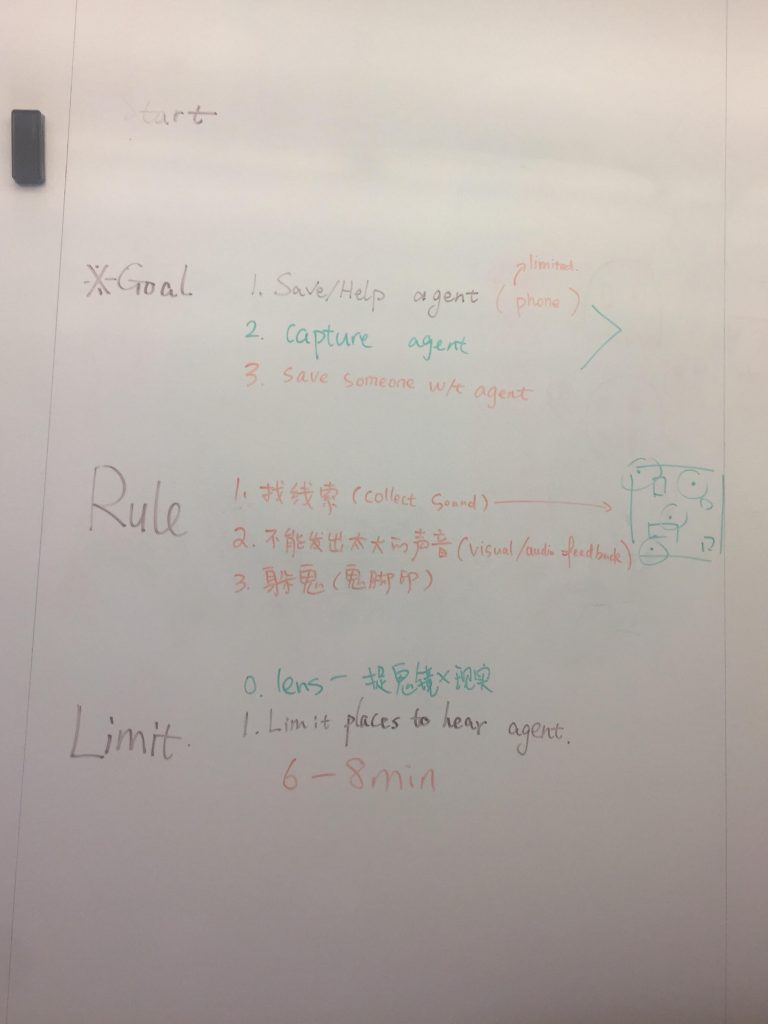 Start
limited.
※Goal 1. Save/Help agent (phone)
2. capture agent
3. save someone w/t agent
Rule 1. 找线索 (collect sound)
2. 不能发出太大的声音 (visual/audio feedback)
3. 躲鬼 (鬼脚印)
0. lens — 捉鬼镜×现实
Limit. 1. Limit places to hear agent.
6 – 8min